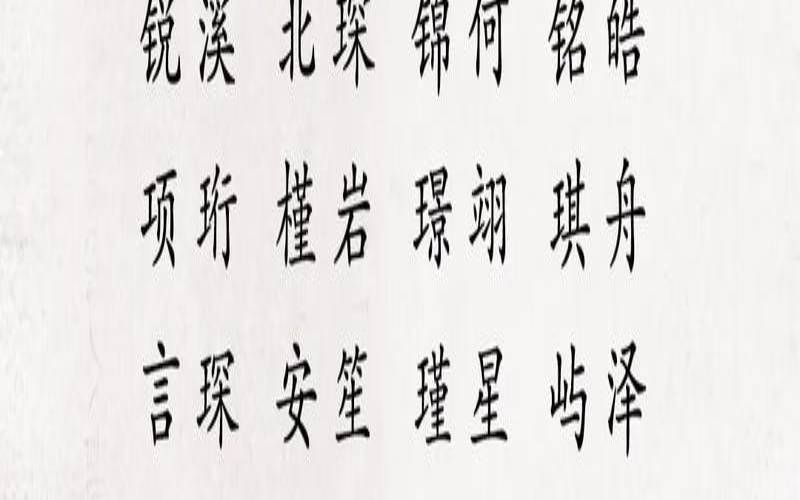 锐溪 北琛 锦何 铭皓
项珩 槿岩 璟翊 琪舟
言琛 安笙 瑾星 屿泽